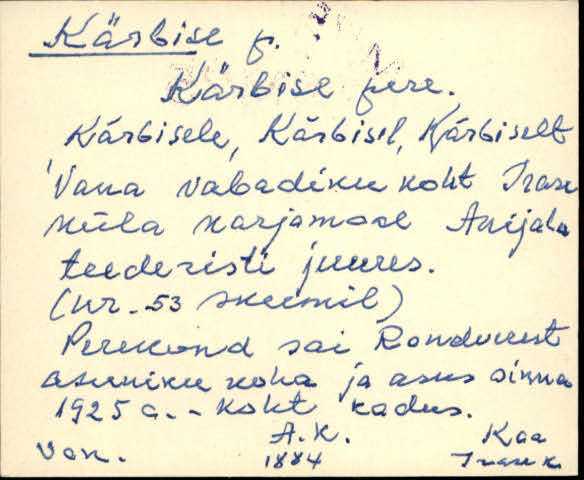 Kärbise p.
Kärbise pere.
Kärbisele, Kärbisil, Kärbiselt
Vana vabadiku koht Irase
küla karjamaal Anijala
teederisti juures.
(nr. 53 skeemil)
Perekond sai
asuniku koha ja asus sinna
1925 a. - koht kadus.
A.K. Kaa
Von. 1884 Irase k.